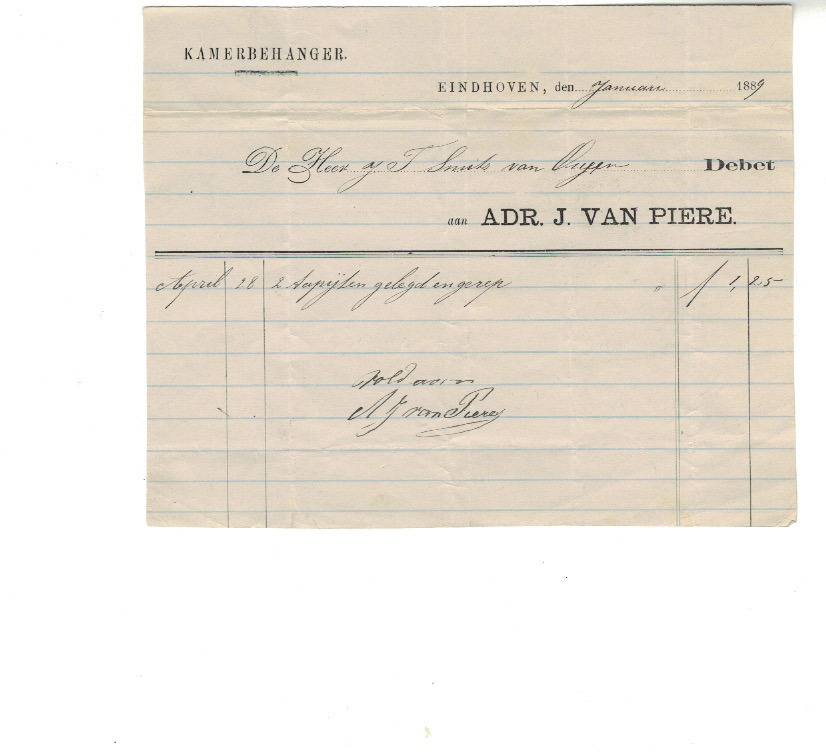 KAMERBEHANGER.
EINDHOVEN, den Januari 1889
De Heer J T Smits van Oyen Debet
aan ADR. J. VAN PIERE.
April 28 2 tapijten gelegd en gerep " f 1,25
voldaan
A J van Piere